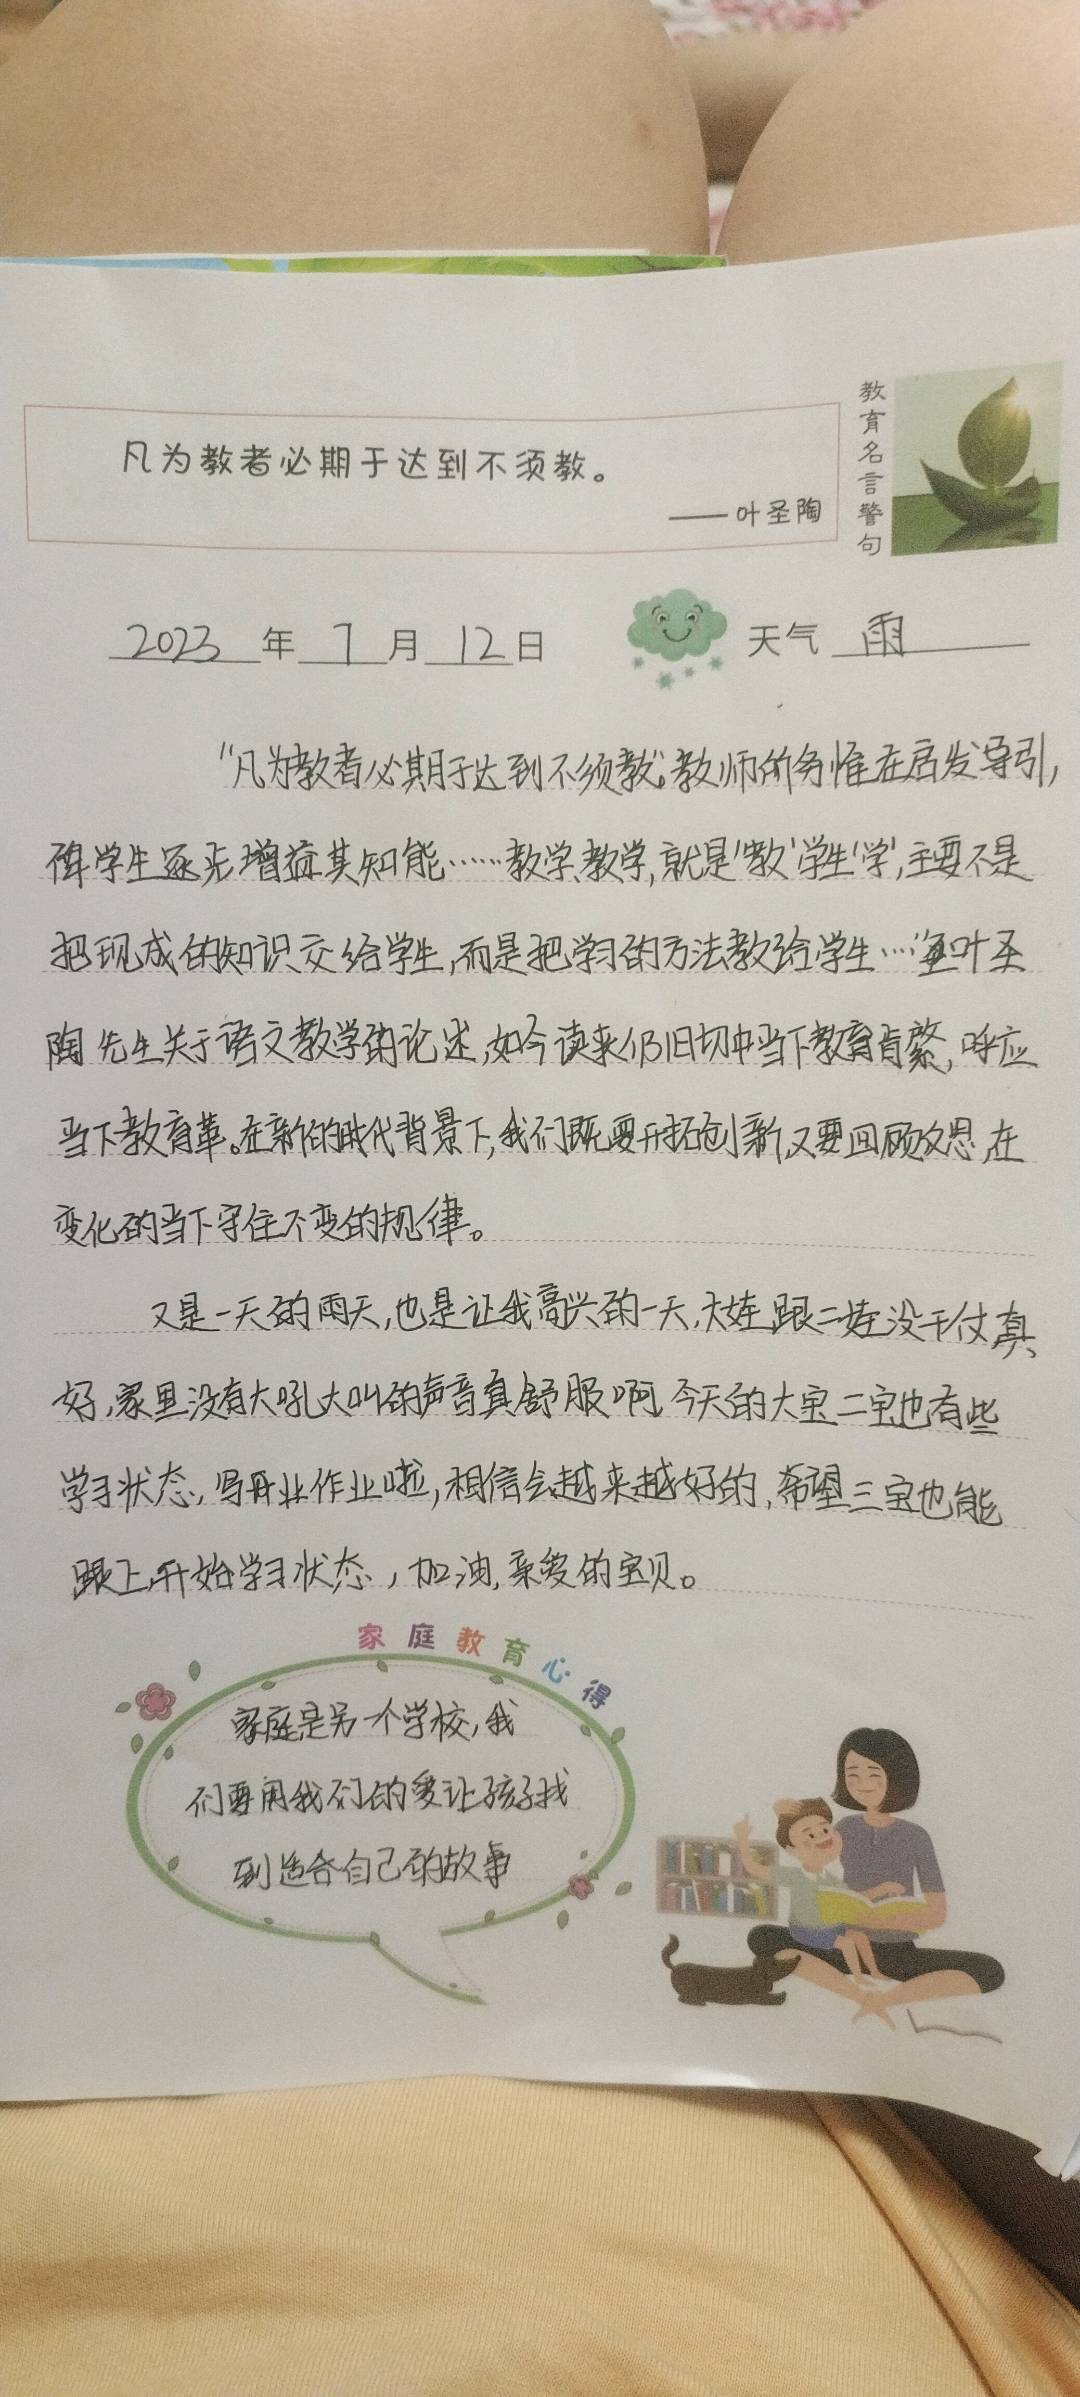 凡为教者必期于达到不须教。
——叶圣陶
教育名言警句
2023年7月12日 天气 雨
“凡为教者必期于达到不须教”,教师所务惟在启发导引,
俾学生逐步增益其知能……教学、教学,就是‘教’学生‘学’,主要不是
把现成的知识交给学生,而是把学习的方法教给学生…”重叶圣
陶先生关于语文教学的论述,如今读来仍旧切中当下教育肯綮,呼应
当下教育革。在新的时代背景下,我们既要开拓创新,又要回顾反思,在
变化的当下守住不变的规律。
又是一天的雨天,也是让我高兴的一天,大娃跟二娃没干仗,真
好,家里没有大吼大叫的声音真舒服啊,今天的大宝二宝也有些
学习状态,写开业作业啦,相信会越来越好的,希望三宝也能
跟上,开始学习状态,加油,亲爱的宝贝。
家庭教育心得
家庭是另一个学校,我
们要用我们的爱让孩子找
到适合自己的故事